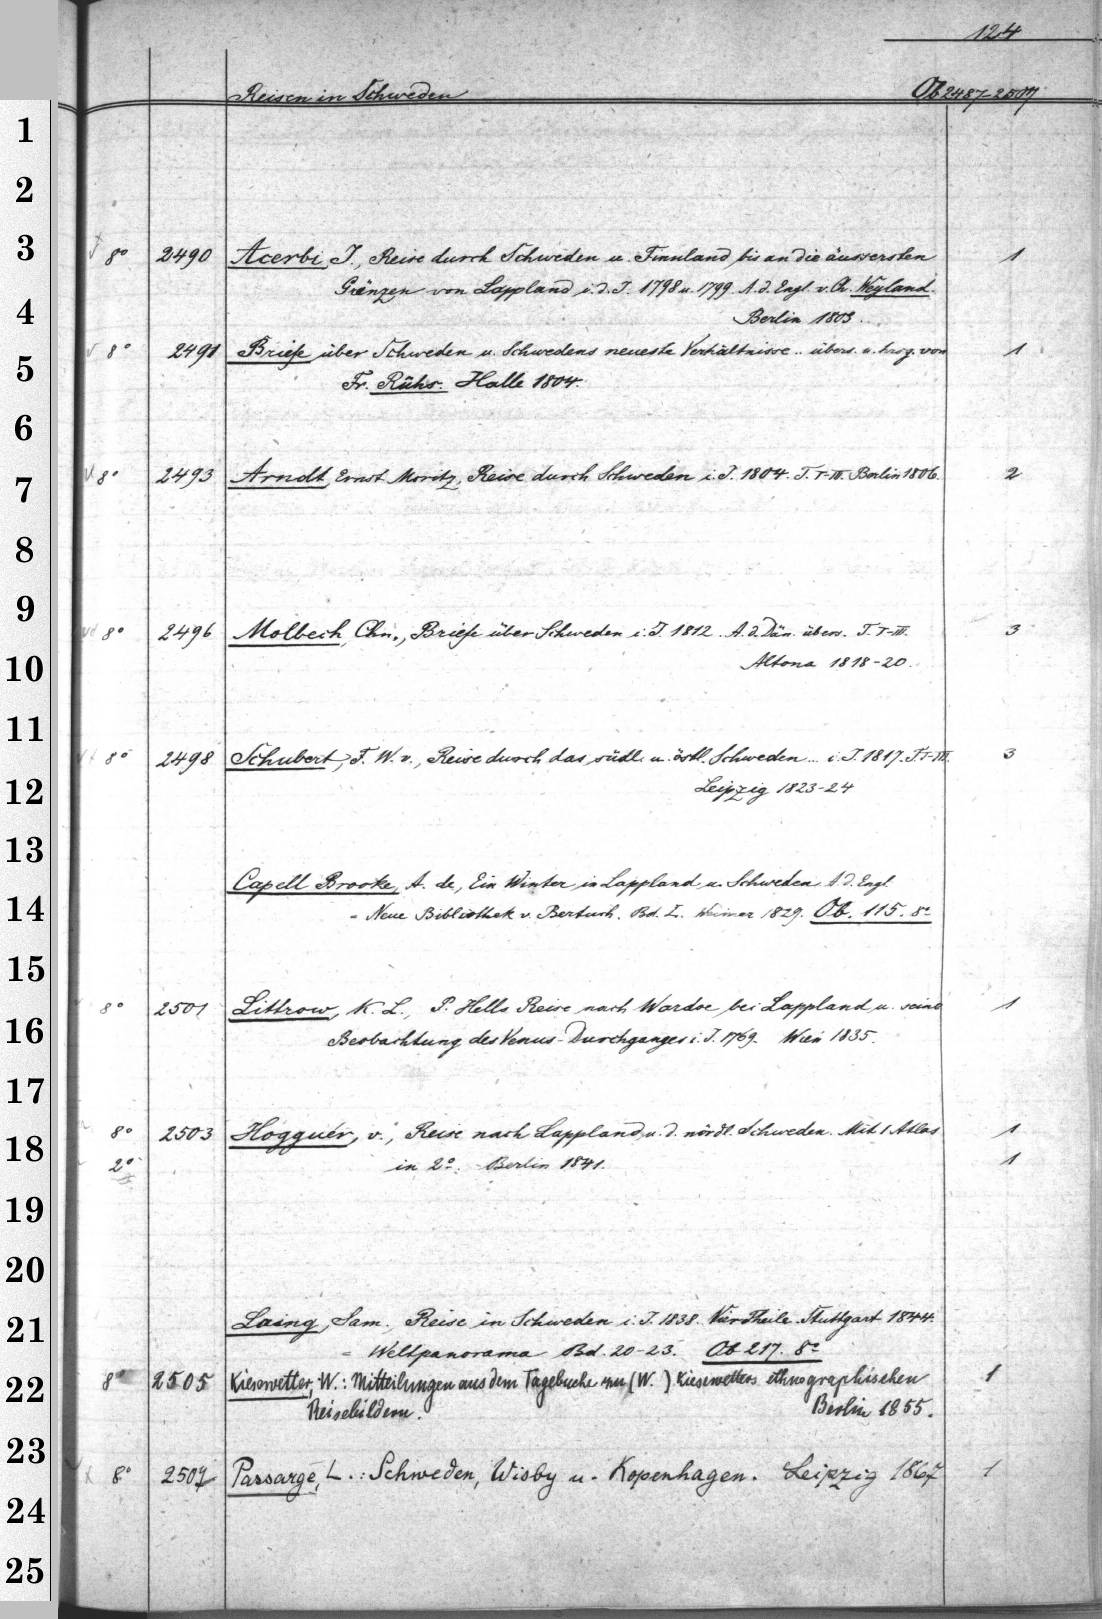 124
Reisen in Schweden Ob 2487-2507
1
2
3
8° 2490 Acerbi, J., Reise durch Schweden u. Finnland bis an die äussersten 1
Gränzen von Lappland i. d. J. 1798 u. 1799. A. d. Engl. v. Ch. Weyland.
4
Berlin 1803.
8° 2491 Briefe über Schweden u. Schwedens neueste Verhältnisse .. übers. u. hrsg. von 1
5
Fr. Rühs. Halle 1804.
6
8° 2493 Arndt, Ernst Moritz, Reise durch Schweden i. J. 1804. T. I-IV. Berlin 1806. 2
7
8
9
8° 2496 Molbech, Chn., Briefe über Schweden i. J. 1812. A. d. Dän. übers. T. I-III. 3
10
Altona 1818-20.
11
8° 2498 Schubert, F. W. v., Reise durch das südl. u. östl. Schweden ... i. J. 1817. T. I-III. 3
12
Leipzig 1823-24
13
Capell Brooke, A. de, Ein Winter in Lappland u. Schweden. A. d. Engl
14
= Neue Bibliothek v. Bertuch. Bd. Weimar 1829. Ob. 115. 8°
15
8° 2501 Littrow, K. L., P. Hells Reise nach Wardoe bei Lappland u. seine 1
16
Beobachtung des Venus-Durchganges i. J. 1769. Wien 1835.
17
8° 2503 Hogguér, v., Reise nach Lappland u. d. nördl. Schweden. Mit 1 Atlas 1
18
2° in 2°. Berlin 1841. 1
19
20
21
Laing, Sam., Reise in Schweden i. J. 1838. Vier Theile. Stuttgart 1844.
= Weltpanorama Bd. 20-23. Ob 217. 8°
22
8° 2505 Kiesewetter, W.: Mitteilungen aus dem Tagebuche zu (W.) Kiesewetters ethnographischen 1
Reisebildern. Berlin 1855.
23
8° 2507 Passarge, L.: Schweden, Wisby u. Kopenhagen. Leipzig 1867 1
24
25